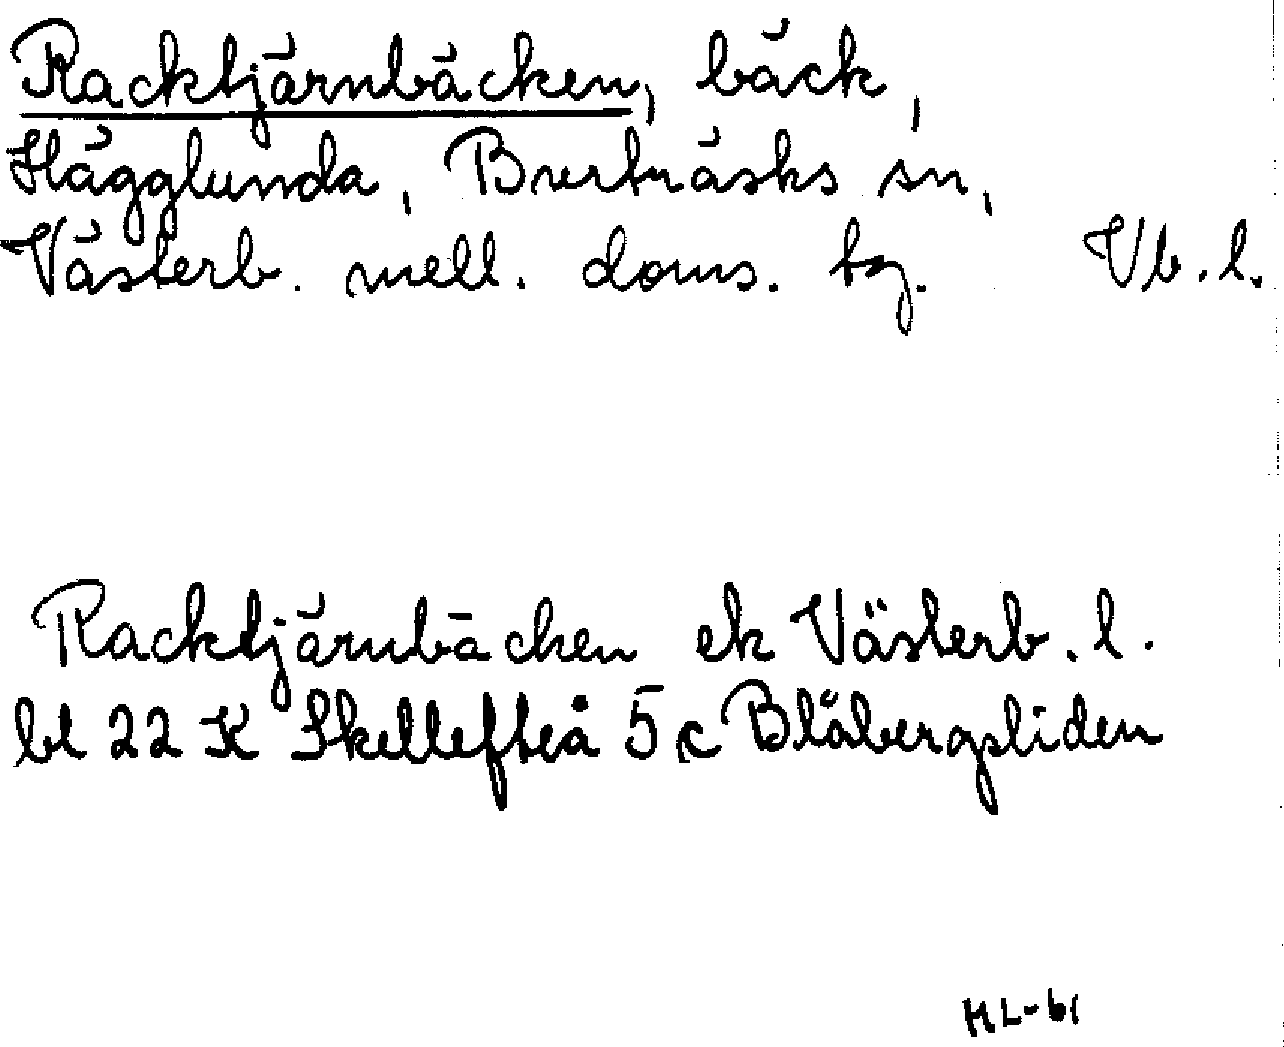 Racktjärnbäcken, bäck,
Hägglunda, Burträsks sn,
Västerb. mell. doms. tg. Vb. l.
Racktjärnbäcken ek Västerb. l.
bl 22 K Skellefteå 5 c Blåbergsliden
HL-61